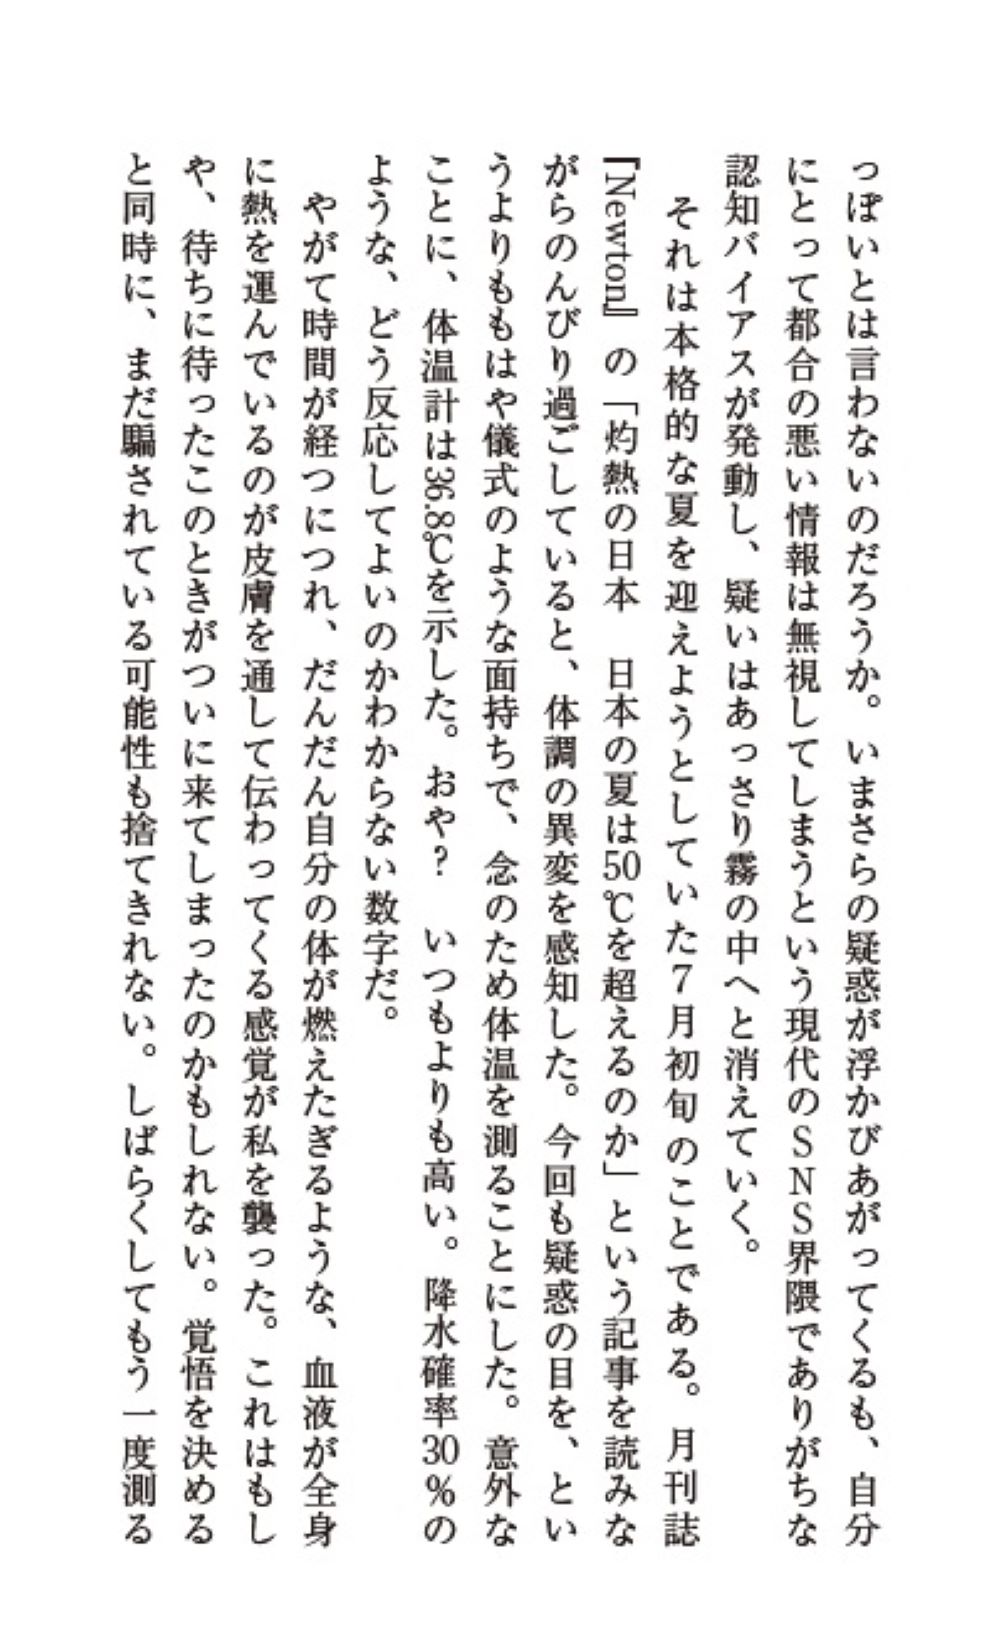 っぽいとは言わないのだろうか。いまさらの疑惑が浮かびあがってくるも、自分
にとって都合の悪い情報は無視してしまうという現代のＳＮＳ界隈でありがちな
認知バイアスが発動し、疑いはあっさり霧の中へと消えていく。
　それは本格的な夏を迎えようとしていた７月初旬のことである。月刊誌
『Newton』の「灼熱の日本　日本の夏は50℃を超えるのか」という記事を読みな
がらのんびり過ごしていると、体調の異変を感知した。今回も疑惑の目を、とい
うよりももはや儀式のような面持ちで、念のため体温を測ることにした。意外な
ことに、体温計は36.8℃を示した。おや？　いつもよりも高い。降水確率30％の
ような、どう反応してよいのかわからない数字だ。
　やがて時間が経つにつれ、だんだん自分の体が燃えたぎるような、血液が全身
に熱を運んでいるのが皮膚を通して伝わってくる感覚が私を襲った。これはもし
や、待ちに待ったこのときがついに来てしまったのかもしれない。覚悟を決める
と同時に、まだ騙されている可能性も捨てきれない。しばらくしてもう一度測る